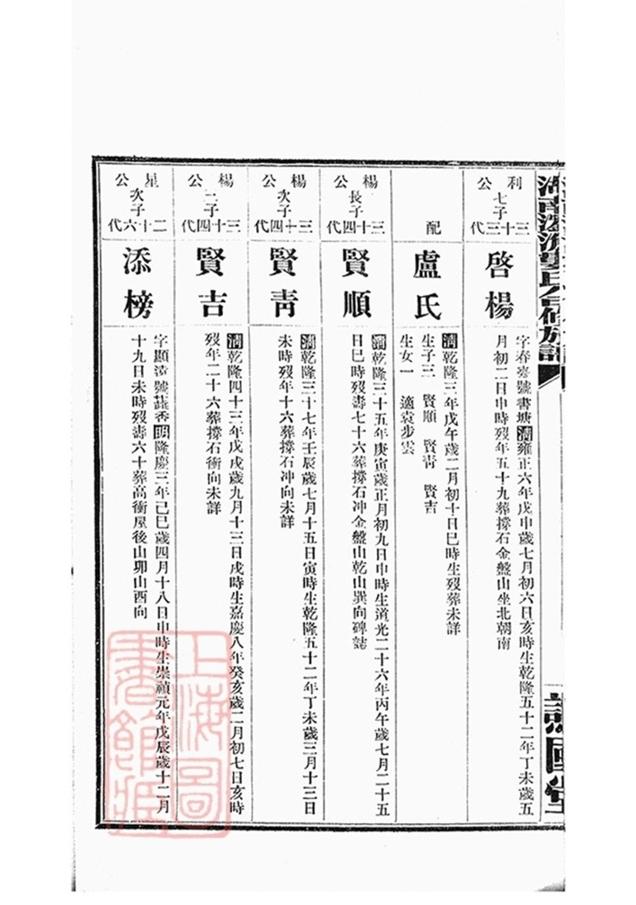 利公
七子
三十三代
啓楊
字春臺號書塘清雍正六年戊申歲七月初六日亥時生乾隆五十二年丁未歲五
月初二日申時歿年五十九葬撐石金盤山坐北朝南
配
盧氏
清乾隆三年戊午歲二月初十日巳時生歿葬未詳
生子三 賢順 賢靑 賢吉
生女一 適袁步雲
楊公
長子
三十四代
賢順
清乾隆三十五年庚寅歲正月初九日申時生道光二十六年丙午歲七月二十五
日巳時歿壽七十六葬撐石冲金盤山乾山巽向碑誌
楊公
次子
三十四代
賢靑
清乾隆三十七年壬辰歲七月十五日寅時生乾隆五十二年丁未歲三月十三日
未時歿年十六葬撐石冲向未詳
楊公
三子
三十四代
賢吉
清乾隆四十三年戊戌歲九月十三日戌時生嘉慶八年癸亥歲二月初七日亥時
歿年二十六葬撐石衝向未詳
星公
次子
二十六代
添榜
字顯 號 香明隆慶三年己巳歲四月十八日申時生崇禎元年戊辰歲十二月
十九日未時歿壽六十葬高衝屋後山卯山酉向
上海圖
書館藏